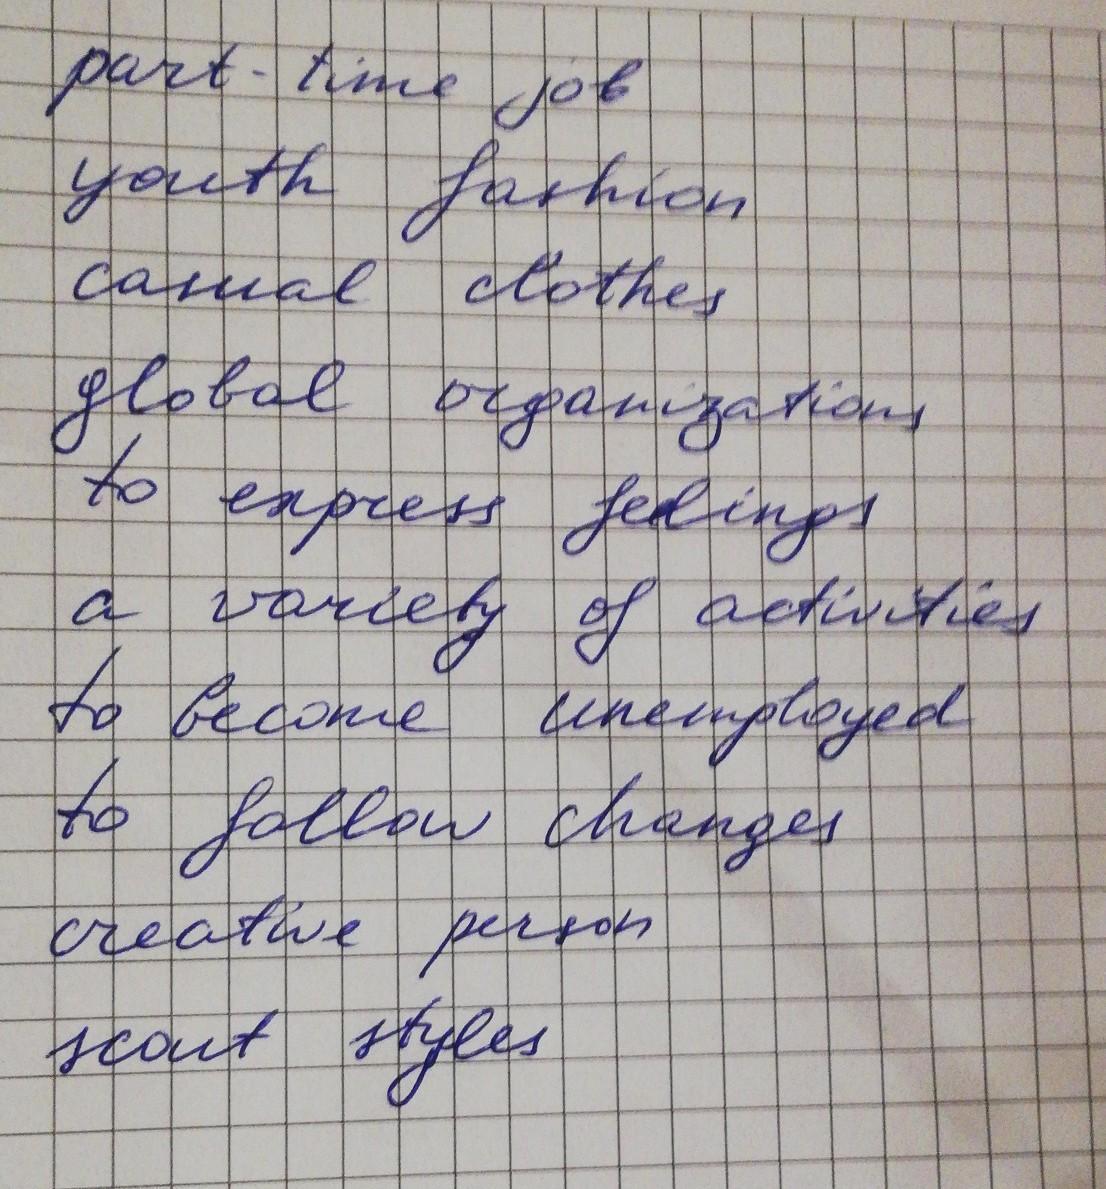 part-time job
youth fashion
casual clothes
global organizations
to express feelings
a variety of activities
to become unemployed
to follow changes
creative person
scout styles